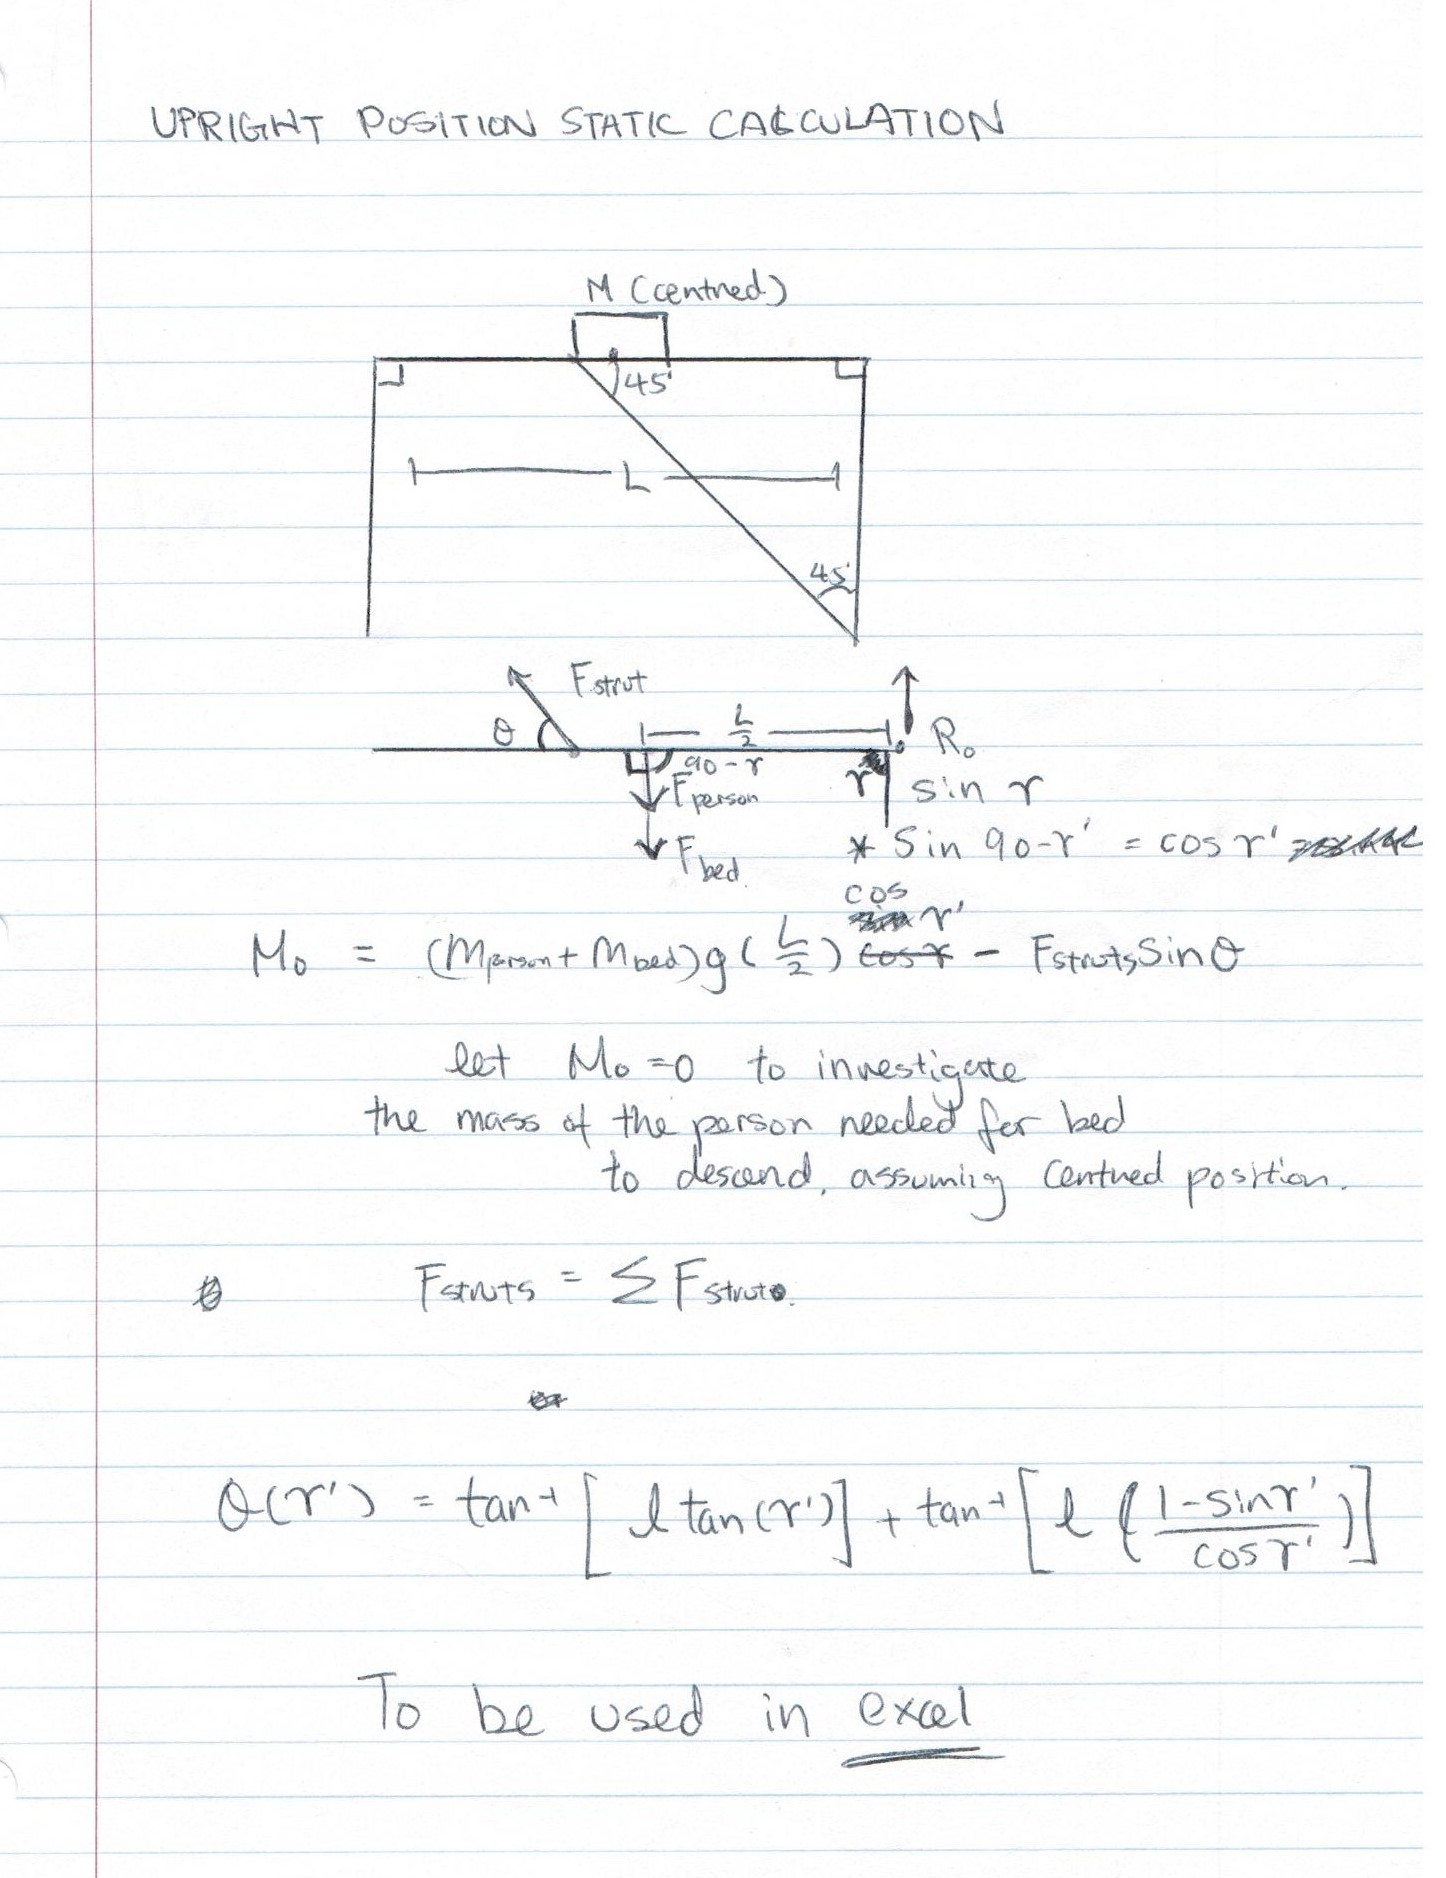 UPRIGHT POSITION STATIC CALCULATION
M (centred)
45°
L
45°
Fstrut
θ
L/2
R₀
90-r
r
sin r
Fperson
* Sin 90-r' = cos r'
Fbed
cos
r'
M₀ = (Mperson + Mbed)g(L/2) cos r - Fstruts Sin θ
let M₀ = 0 to investigate
the mass of the person needed for bed
to descend, assuming Centred position.
Fstruts = ΣFstruts.
θ(r') = tan⁻¹[l tan(r')] + tan⁻¹[l((1-sin r')/cos r')]
To be used in excel